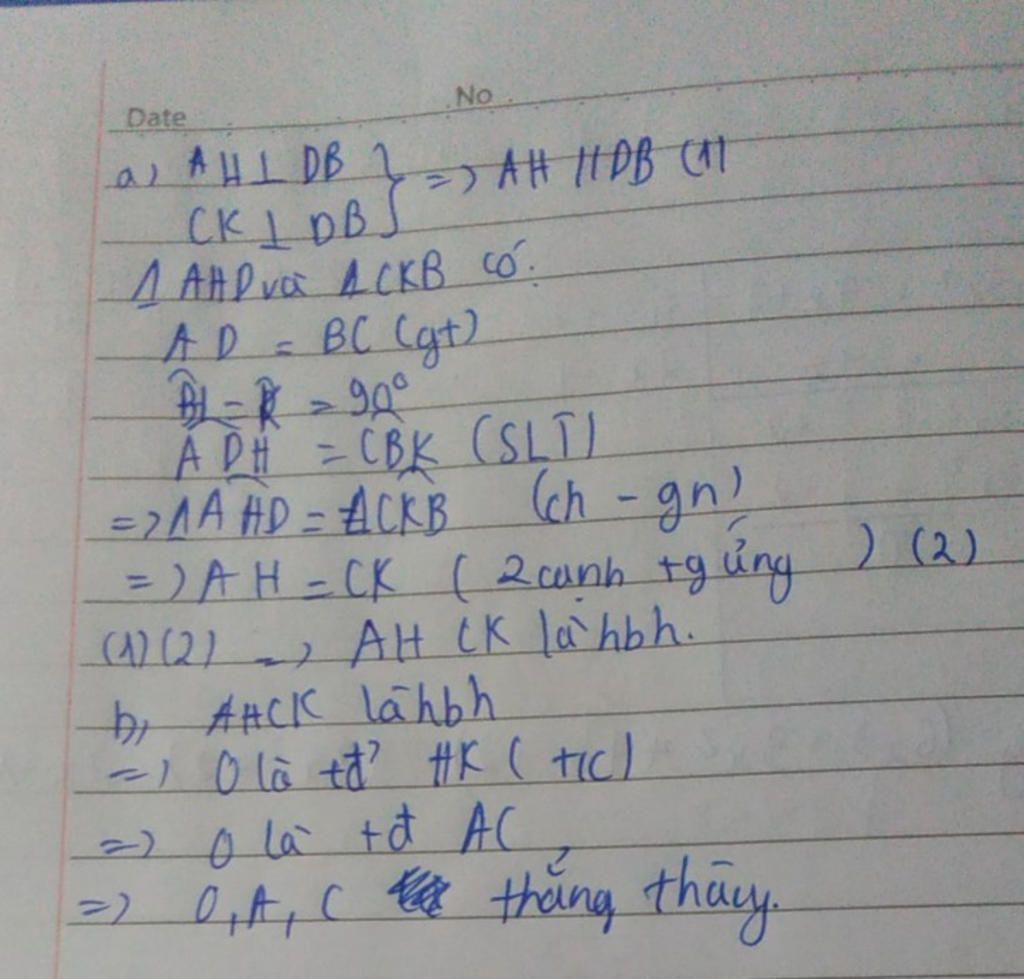 Date No
a) AH ⊥ DB } => AH // DB (1)
CK ⊥ DB
Δ AHD và Δ CKB có:
AD = BC (gt)
Ĥ = K̂ = 90°
ADH = CBK (SLT)
=> Δ AHD = Δ CKB (ch - gn)
=> AH = CK (2 cạnh tg ứng) (2)
(1)(2) => AHCK là hbh.
b) AHCK là hbh
=> O là tđ HK (t/c)
=> O là tđ AC
=> O, A, C thẳng thàng.